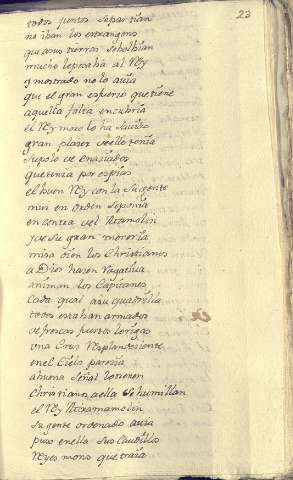 23
todos juntos se partian
no iban los estrangeros
que a sus tierras se bolbian
mucho le pesaba al Rey
y mostrado no lo auia
que el gran esfuerzo que tiene
aquella falta encubria
el Rey moro lo ha sauido
gran placer de ello tenia
supolo de enaziados
que tenia por espias
el buen Rey con la su gente
mui en orden se ponia
en contra del
y de su gran moreria
missa oien los Christianos
a Dios hazen rogativa
animan los Capitanes
Cada qual a su quadrilla
todos estaban armados
de frescas fuertes lorigas
una Cruz resplandeciente
en el Cielo parezia
a buena señal
Christianos a ella se humillan
el Rey
su gente ordenado auia
puso en ella sus Caudillos
Reyes moros que traia